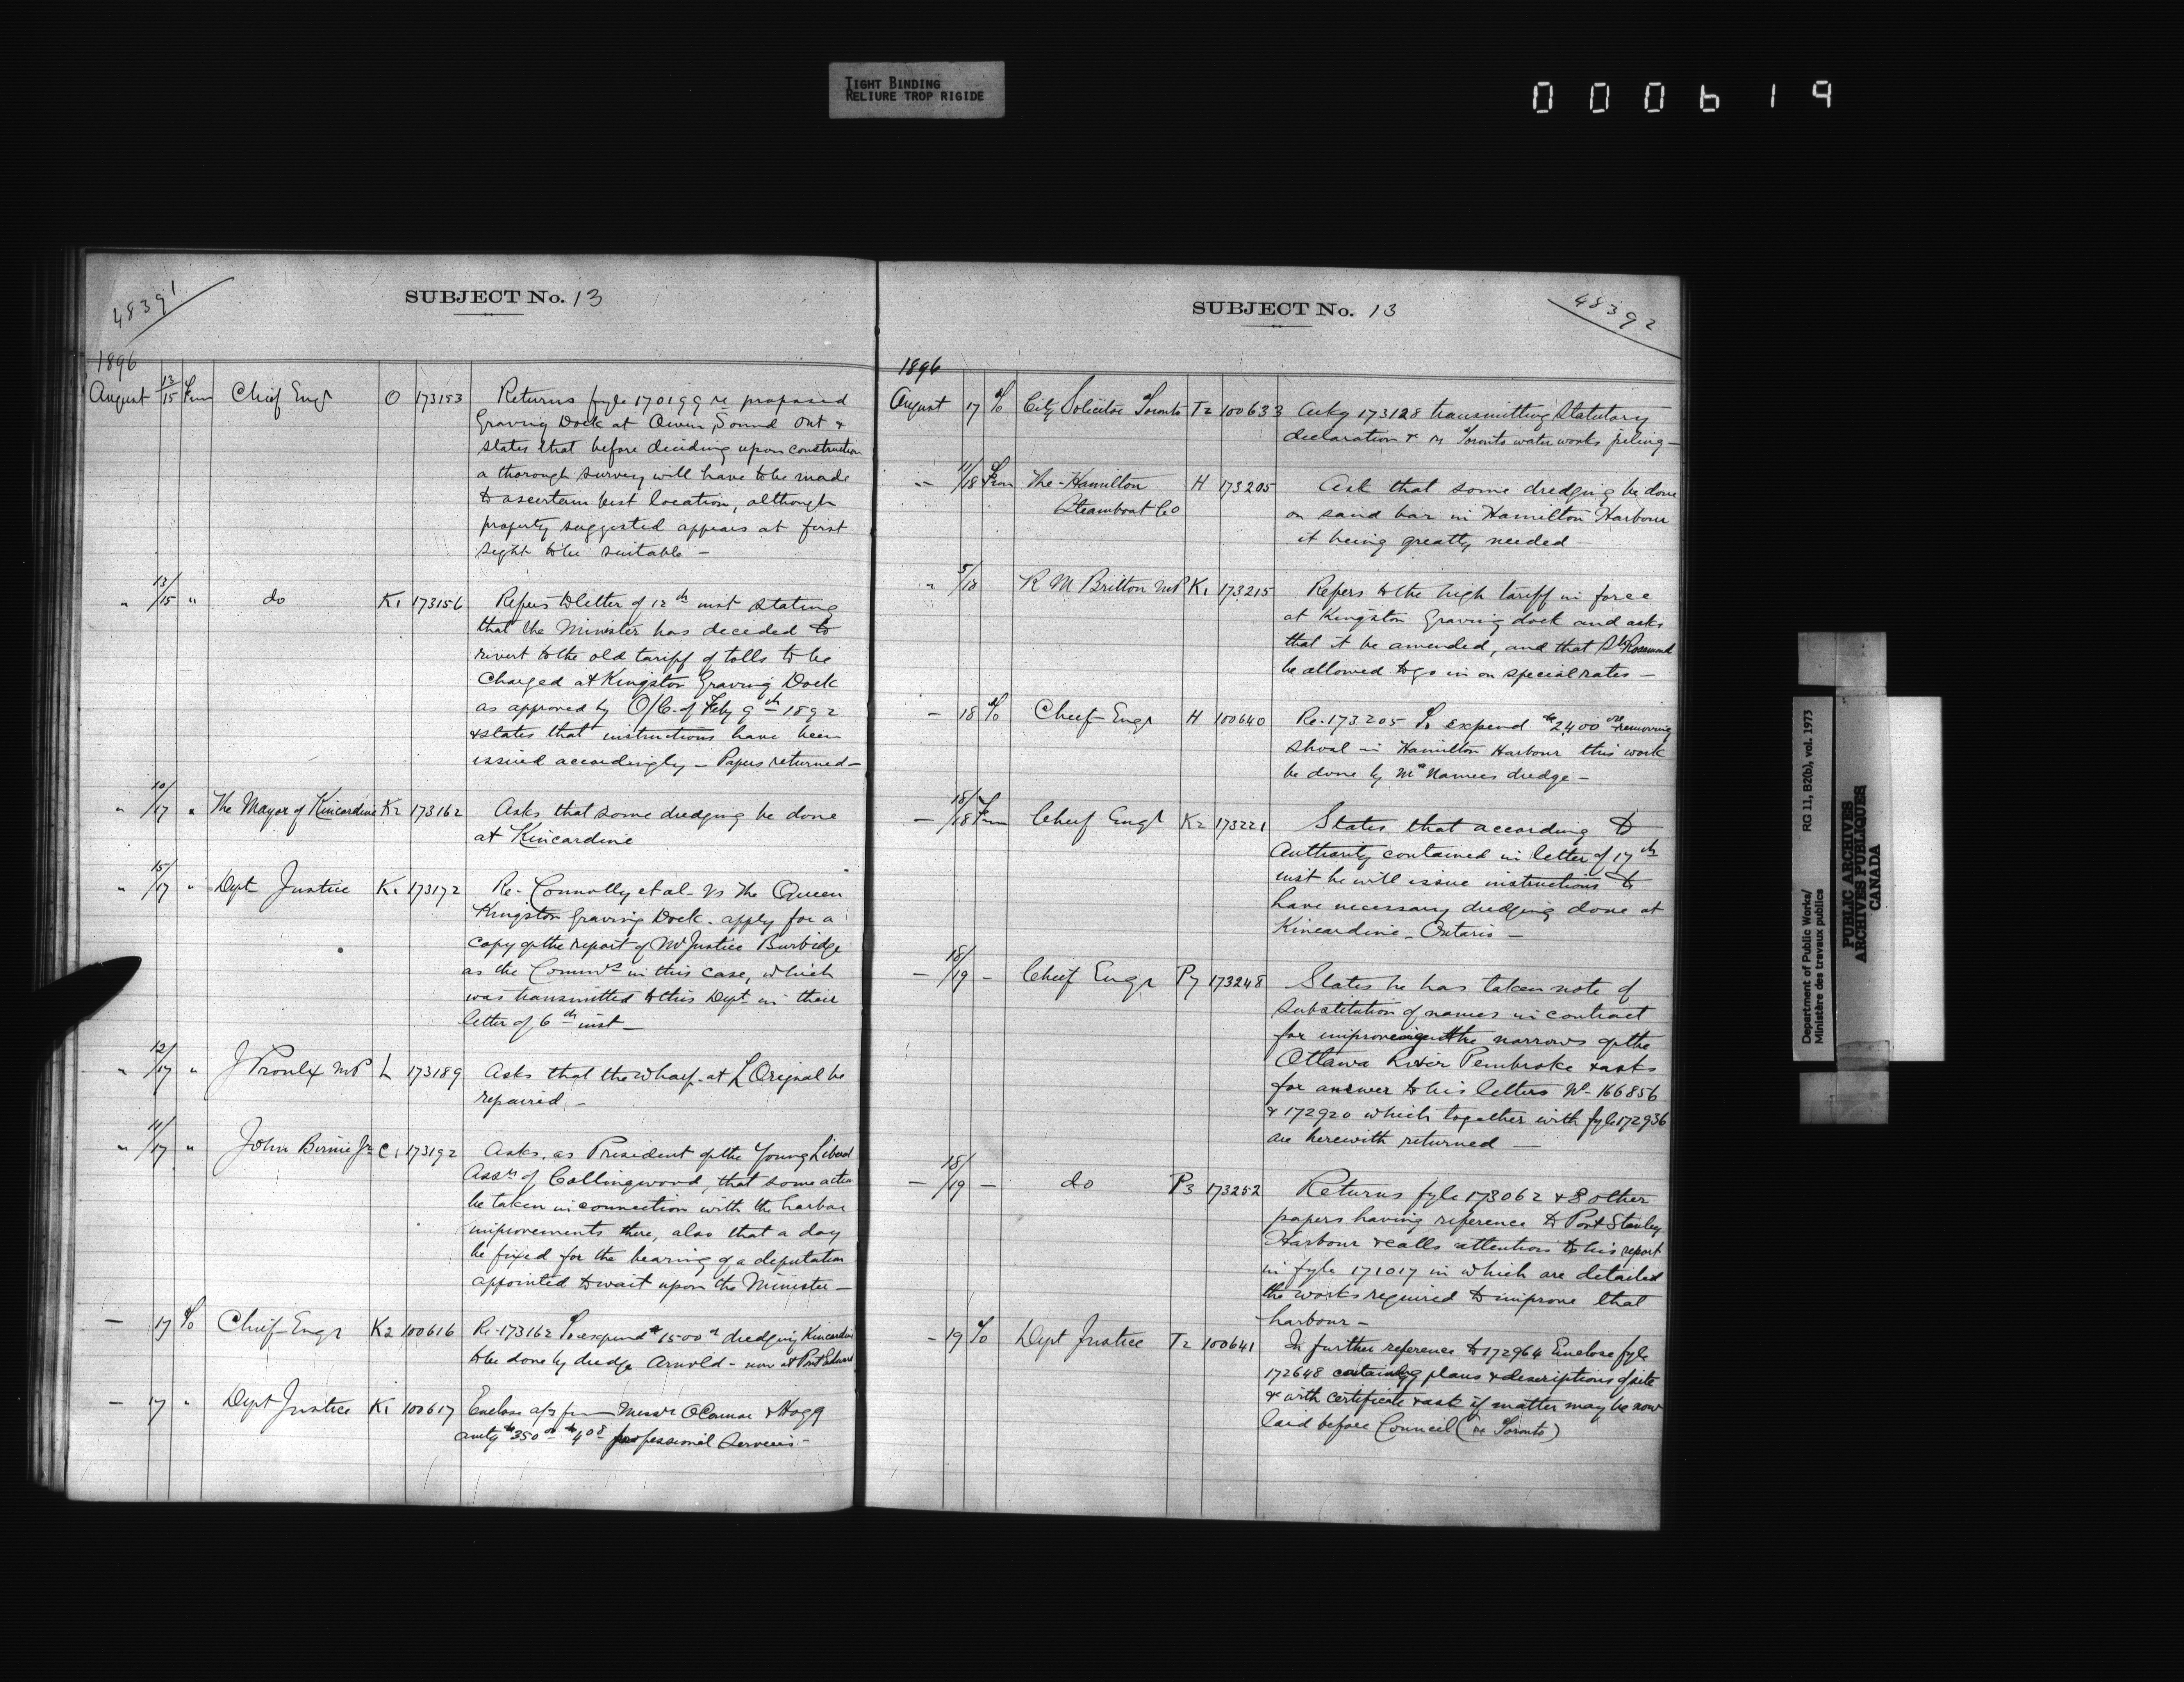 TIGHT BINDING
RELIURE TROP RIGIDE
000619
48391
SUBJECT No. 13
1896
August 13/15 From Chief Engr O 173153 Returns fyle 170199 re proposed
Graving Dock at Owen Sound Ont &
states that before deciding upon construction
a thorough survey will have to be made
to ascertain best location, although
property suggested appears at first
sight to be suitable —
" 13/15 " do K1 173156 Refers to letter of 12th inst stating
that the Minister has decided to
rivert to the old tariff of tolls to be
Charged at Kingston Graving Dock
as approved by O/C. of Feby 9th 1892
& states that instructions have been
issued accordingly — Papers returned —
" 10/17 " The Mayor of Kincardine K2 173162 Asks that some dredging be done
at Kincardine
" 15/17 " Dept Justice K1 173172 Re- Connolly et al- vs The Queen
Kingston Graving Dock. apply for a
copy of the report of Mr Justice Burbidge
as the Commrs in this case, which
was transmitted to this Dept in their
letter of 6th inst —
" 12/17 " J Proulx MP L 173189 Asks that the wharf at L'Orignal be
repaired —
" 11/17 " John Birnie Jr C1 173192 Asks, as President of the Young Liberal
Assn of Collingwood, that some action
be taken in connection with the harbor
improvements there, also that a day
be fixed for the hearing of a deputation
appointed to wait upon the Minister —
— 17 To Chief Engr K2 100616 Re-173162 To expend $1500 dredging Kincardine
to be done by dredge Arnold - now at Port Edward
— 17 " Dept Justice K1 100617 Enclose a/cs from Messrs O'Connor & Hogg
amtg $350 $408 professional Services -
SUBJECT No. 13
48392
1896
August 17 To City Solicitor Toronto T2 100633 Ackg 173128 transmitting Statutory
declaration & re Toronto water works piling —
" 11/18 From The Hamilton H 173205 Ask that some dredging be done
Steamboat Co on sand bar in Hamilton Harbour
it being greatly needed —
" 5/18 R M Britton MP K1 173215 Refers to the high tariff in force
at Kingston Graving dock and asks
that it be amended, and that Str Rosemund
be allowed to go in on special rates —
— 18 To Chief Engr H 100640 Re-173205 To expend $2400 removing
shoal in Hamilton Harbour this work
be done by McNamees dredge —
— 18/18 From Chief Engr K2 173221 States that according to
Authority contained in letter of 17th
inst he will issue instructions to
have necessary dredging done at
Kincardine - Ontario —
— 18/19 - Chief Engr P7 173248 States he has taken note of
substitution of names in contract
for improving the narrows of the
Ottawa River Pembroke & asks
for answer to his letters No 166856
& 172920 which together with fyle 172936
are herewith returned —
— 18/19 - do P3 173252 Returns fyle 173062 & 8 other
papers having reference to Port Stanley
Harbour & calls attention to his report
in fyle 171017 in which are detailed
the works required to improve that
harbour —
- 19 To Dept Justice T2 100641 In further reference to 172964 Enclose fyle
172648 containing plans & descriptions of site
& with certificate & ask if matter may be now
laid before Council (re Toronto)
Department of Public Works/ RG 11, B2(b), vol. 1973
Ministère des travaux publics
PUBLIC ARCHIVES
ARCHIVES PUBLIQUES
CANADA